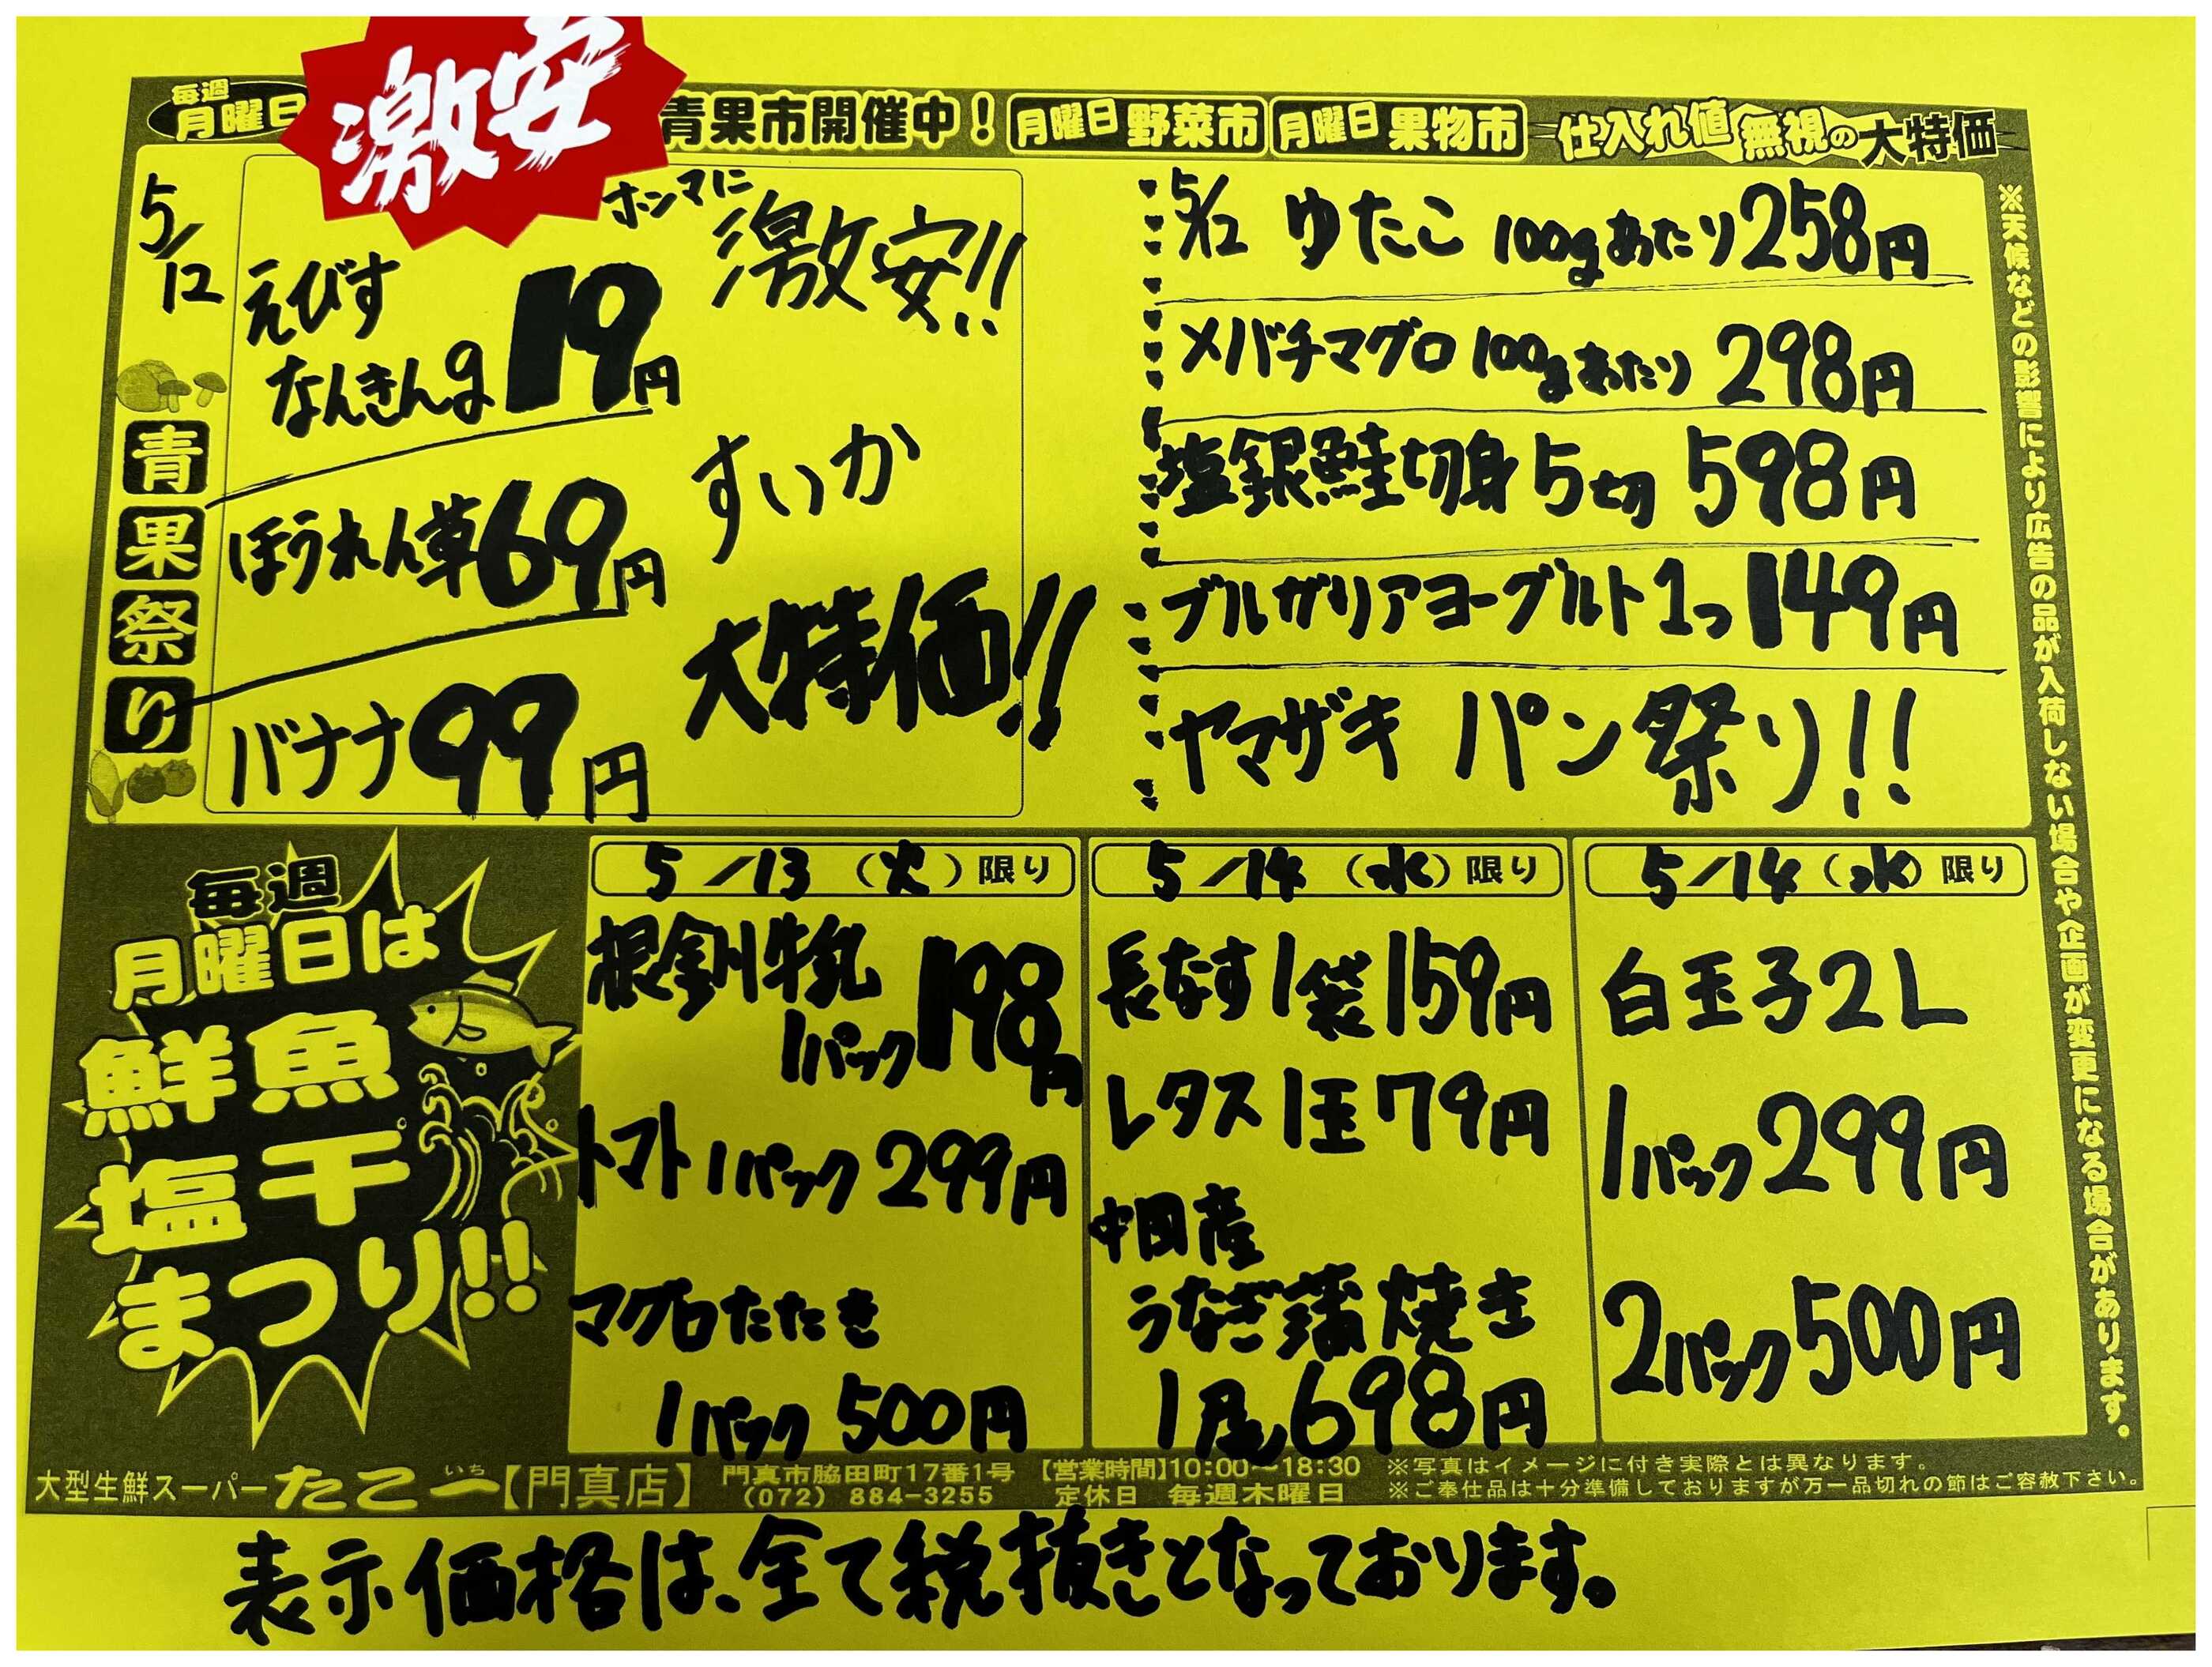 毎週
月曜日
激安
青果市開催中！
月曜日 野菜市
月曜日 果物市
仕入れ値無視の大特価
5/12
青果祭り
ホンマに
激安!!
えびす
なんきんg 19円
ほうれん草 69円
バナナ 99円
すいか
大特価!!
5/12 ゆたこ 100gあたり 258円
メバチマグロ 100gあたり 298円
塩銀鮭切身 5切 598円
ブルガリアヨーグルト 1つ 149円
ヤマザキ パン祭り!!
※天候などの影響により広告の品が入荷しない場合や企画が変更になる場合があります。
毎週
月曜日は
鮮魚
塩干
まつり!!
5/13（火）限り
根釧牛乳
1パック 198円
トマト 1パック 299円
マグロたたき
1パック 500円
5/14（水）限り
長なす 1袋 159円
レタス 1玉 79円
中国産
うなぎ蒲焼き
1尾 698円
5/14（水）限り
白玉子 2L
1パック 299円
2パック 500円
大型生鮮スーパー たこ一 いち 【門真店】
門真市脇田町17番1号
（072）884-3255
【営業時間】10:00～18:30
定休日 毎週木曜日
※写真はイメージに付き実際とは異なります。
※ご奉仕品は十分準備しておりますが万一品切れの節はご容赦下さい。
表示価格は、全て税抜きとなっております。